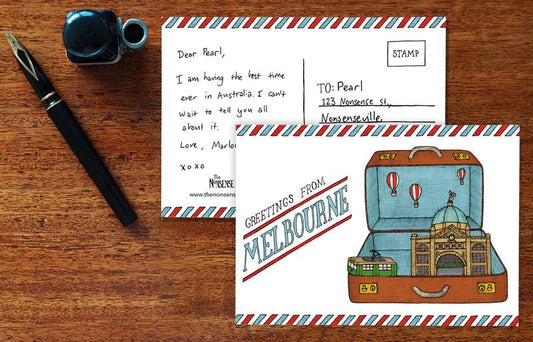 Dear Pearl,
I am having the best time
ever in Australia. I can't
wait to tell you all
about it.
Love, Marlo
xoxo
The
NONSENSE
www.thenonsens
STAMP
TO: Pearl
123 Nonsense st.,
Nonsenseville,
GREETINGS FROM
MELBOURNE